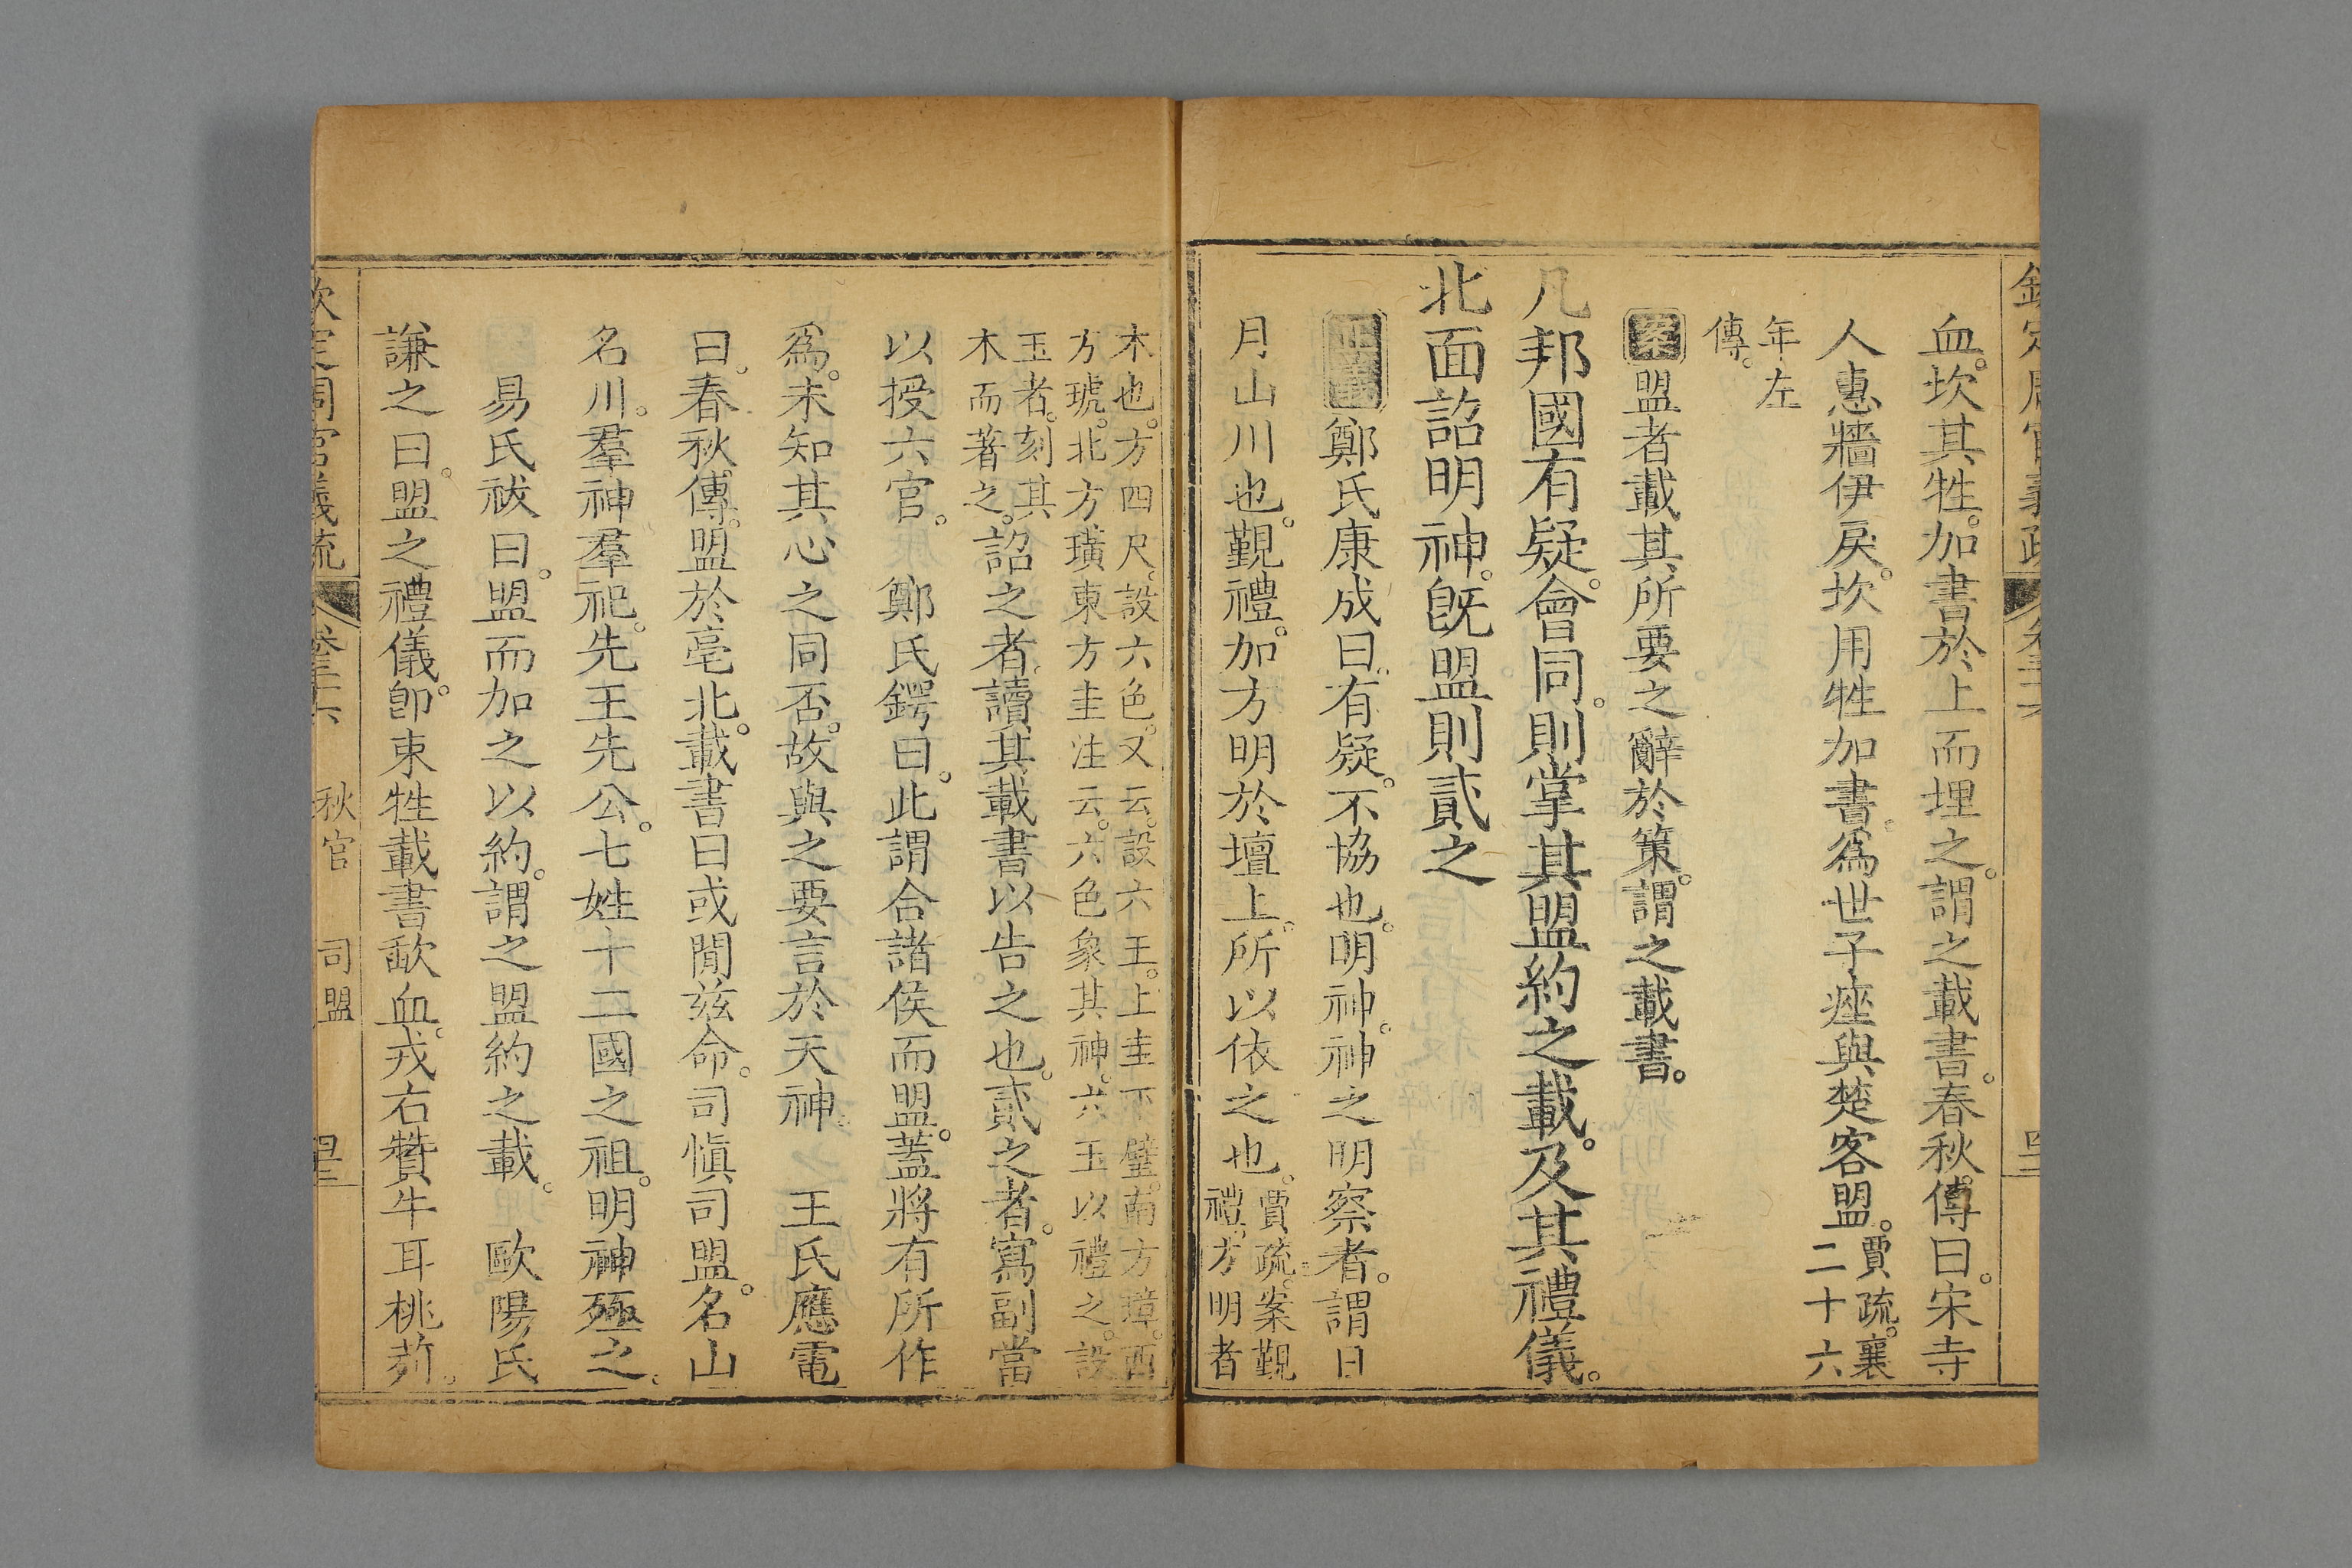 欽定周官義疏 卷三十六
血。坎其牲。加書於上而埋之。謂之載書。春秋傳曰。宋寺
人惠牆伊戾。坎用牲加書。爲世子痤與楚客盟。賈疏。襄二十六
年左傳。
案盟者載其所要之辭於策。謂之載書。
凡邦國有疑。會同。則掌其盟約之載。及其禮儀。
北面詔明神。旣盟則貳之
正義鄭氏康成曰。有疑。不協也。明神。神之明察者。謂日
月山川也。覲禮。加方明於壇上。所以依之也。賈疏。案覲禮。方明者
木也。方四尺。設六色。又云。設六玉。上圭下璧。南方璋。西方琥。北方璜東方圭注云。六色象其神。六玉以禮之。設
玉者。刻其木而著之。詔之者。讀其載書以告之也。貳之者。寫副當
以授六官。 鄭氏鍔曰。此謂合諸侯而盟。蓋將有所作
爲。未知其心之同否。故與之要言於天神。 王氏應電
曰。春秋傳。盟於亳北。載書曰或閒兹命。司愼司盟。名山
名川。羣神羣祀。先王先公。七姓十二國之祖。明神殛之。
易氏祓曰。盟而加之以約。謂之盟約之載。 歐陽氏
謙之曰。盟之禮儀。卽束牲載書歃血。戎右贊牛耳桃茢。
欽定周官義疏 卷三十六 秋官 司盟